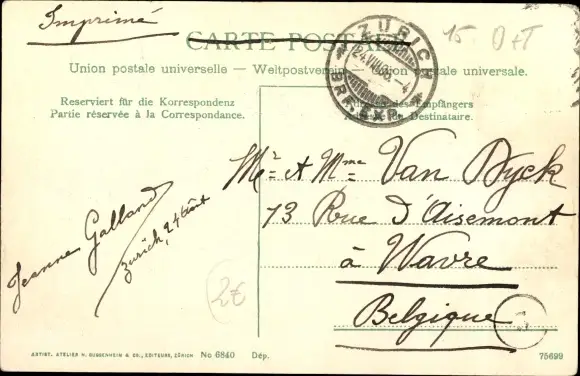 Imprimé
CARTE POSTALE
15 D+T
Union postale universelle — Weltpostverein — Union postale universale.
ZÜRICH
24.VIII.06. 4
BRF. EXP.
Reserviert für die Korrespondenz
Partie réservée à la Correspondance.
Adresse des Empfängers
Adresse du Destinataire.
Mr et Mme Van Dyck
73 Rue d'Aisemont
à Wavre
Belgique
Jeanne Galland
Zurich, 24 Août
2€
ARTIST. ATELIER H. GUGGENHEIM & CO., EDITEURS, ZÜRICH No 6840 Dép. 75699